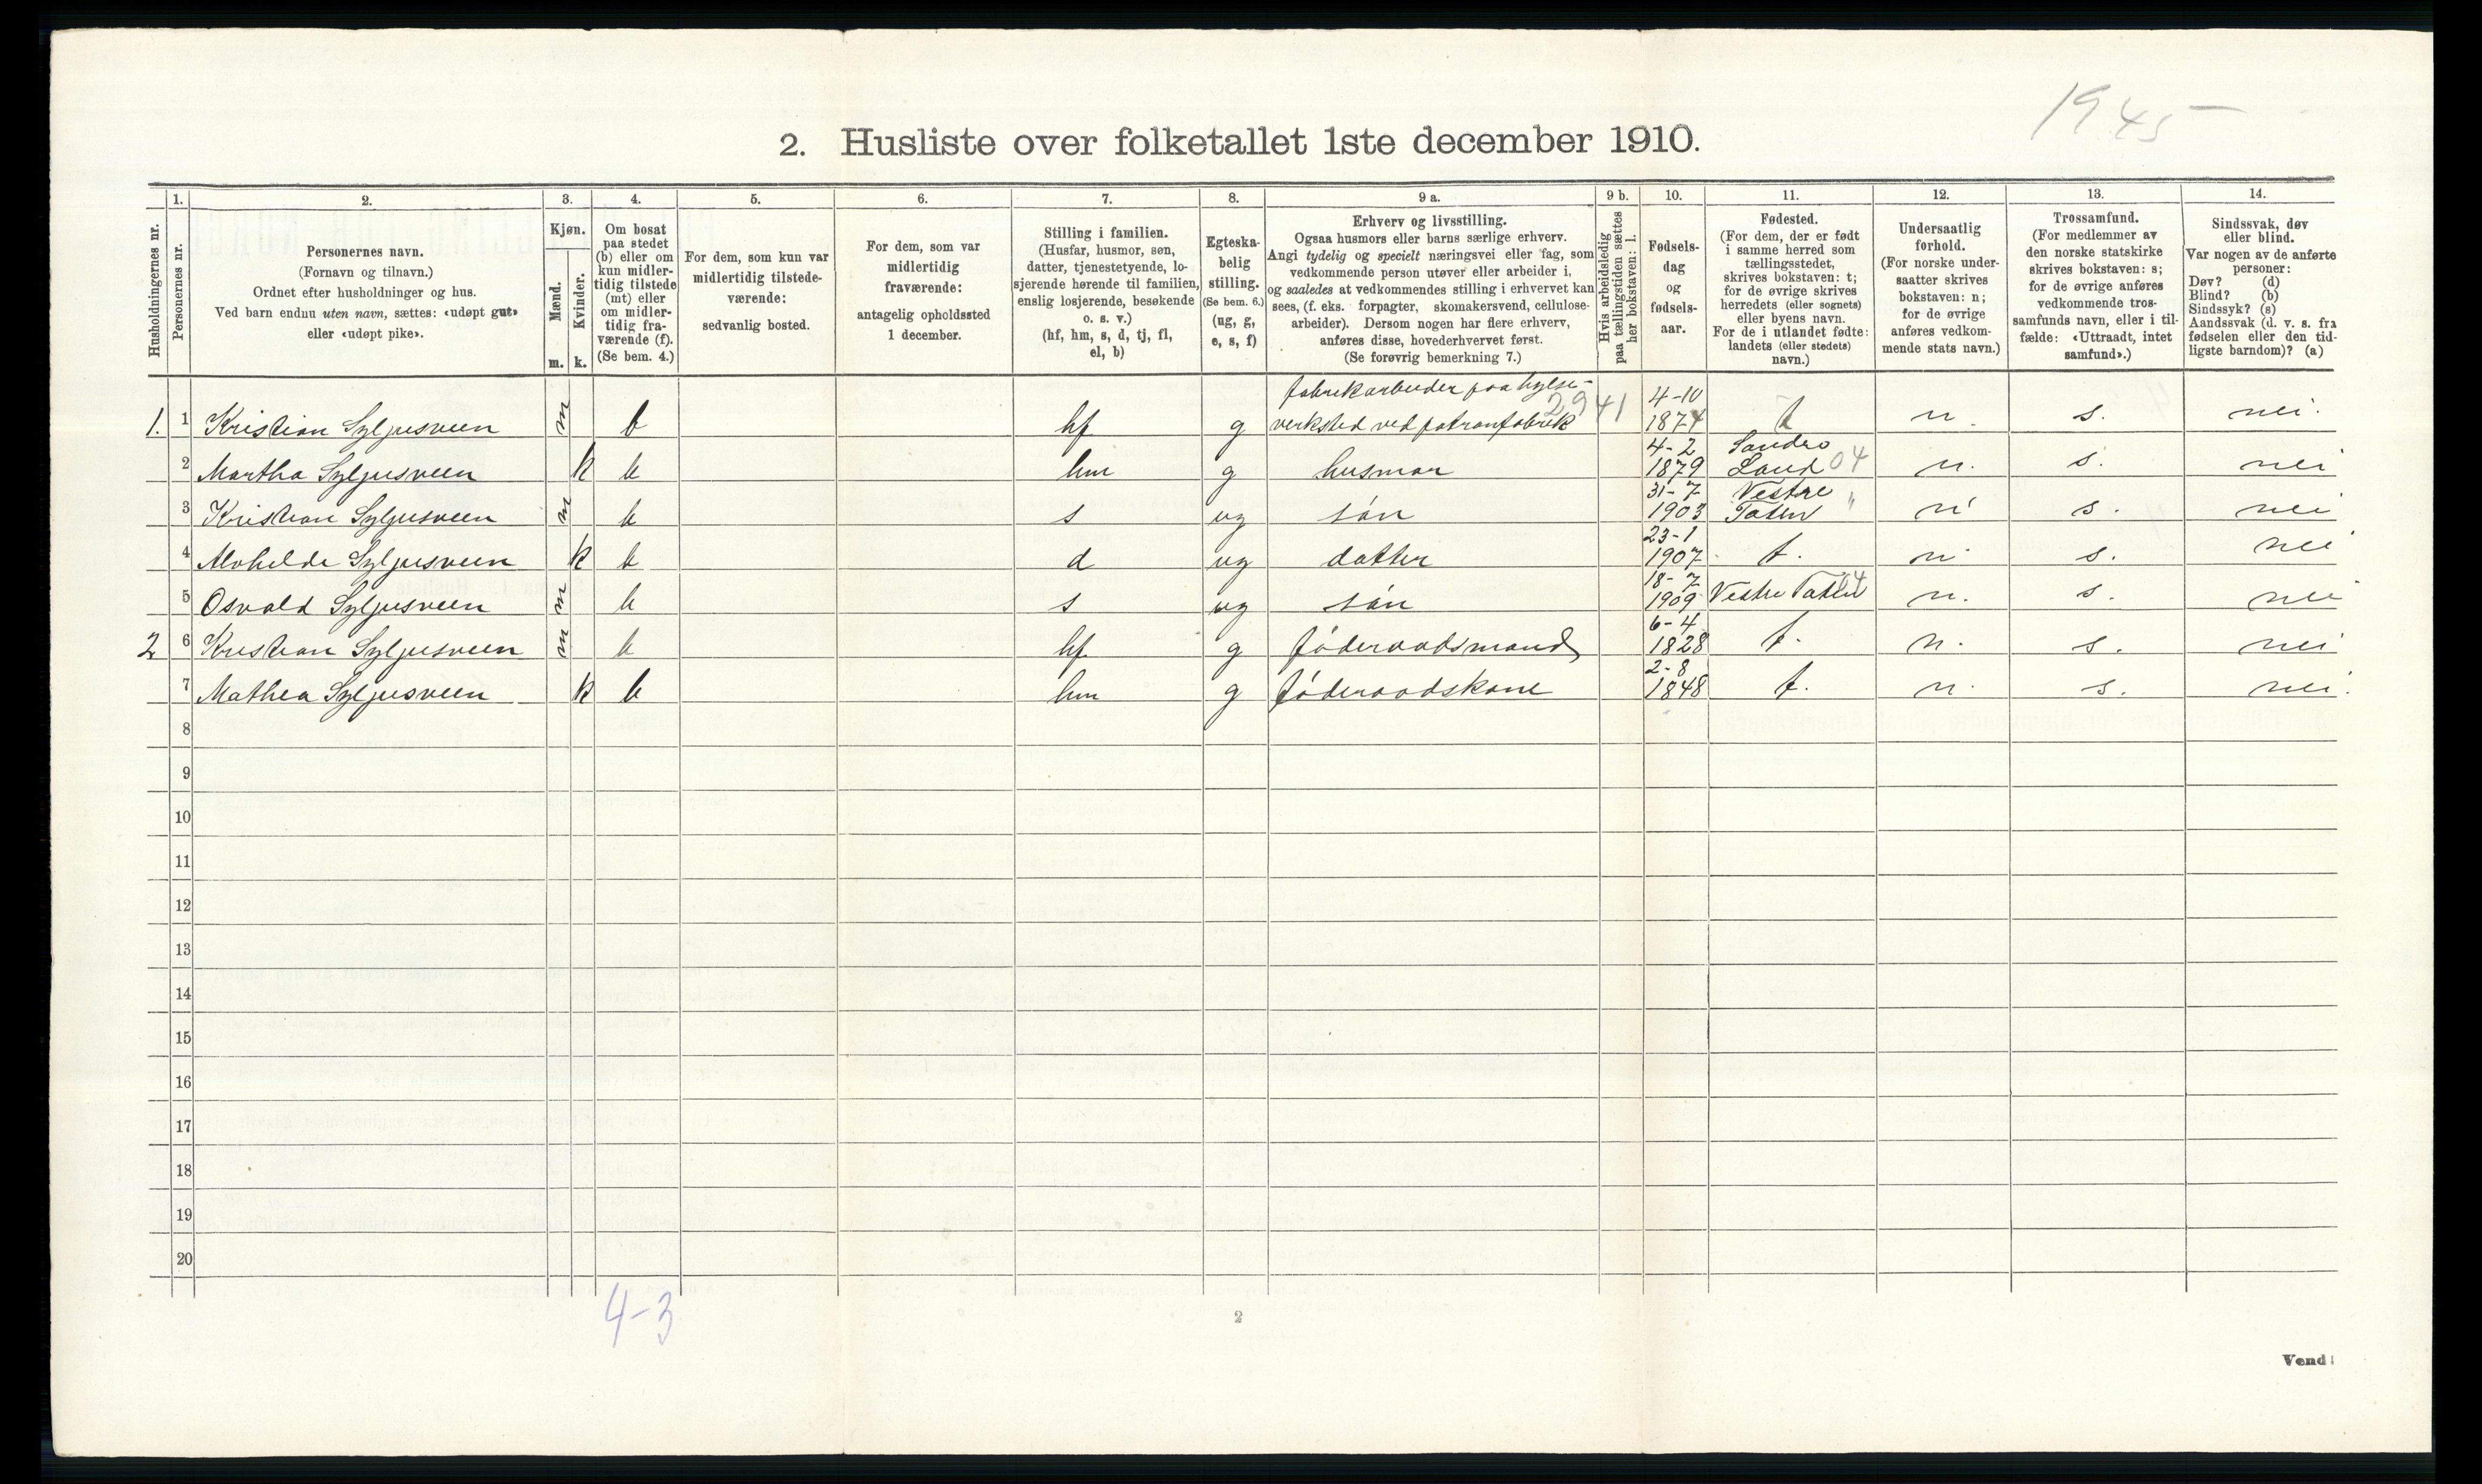 1945
2. Husliste over folketallet 1ste december 1910.
1. 2. 3. 4. 5. 6. 7. 8. 9 a. 9 b. 10. 11. 12. 13. 14.
Husholdningernes nr.
Personernes nr.
Personernes navn.
(Fornavn og tilnavn.)
Ordnet efter husholdninger og hus.
Ved barn endnu uten navn, sættes: «udøpt gut»
eller «udøpt pike».
Kjøn.
Mænd.
Kvinder.
m. k.
Om bosat
paa stedet
(b) eller om
kun midler-
tidig tilstede
(mt) eller
om midler-
tidig fra-
værende (f).
(Se bem. 4.)
For dem, som kun var
midlertidig tilstede-
værende:
sedvanlig bosted.
For dem, som var
midlertidig
fraværende:
antagelig opholdssted
1 december.
Stilling i familien.
(Husfar, husmor, søn,
datter, tjenestetyende, lo-
sjerende hørende til familien,
enslig losjerende, besøkende
o. s. v.)
(hf, hm, s, d, tj, fl,
el, b)
Egteska-
belig
stilling.
(Se bem. 6.)
(ug, g,
e, s, f)
Erhverv og livsstilling.
Ogsaa husmors eller barns særlige erhverv.
Angi tydelig og specielt næringsvei eller fag, som
vedkommende person utøver eller arbeider i,
og saaledes at vedkommendes stilling i erhvervet kan
sees, (f. eks. forpagter, skomakersvend, cellulose-
arbeider). Dersom nogen har flere erhverv,
anføres disse, hovederhvervet først.
(Se forøvrig bemerkning 7.)
Hvis arbeidsledig
paa tællingstiden sættes
her bokstaven: l.
Fødsels-
dag
og
fødsels-
aar.
Fødested.
(For dem, der er født
i samme herred som
tællingsstedet,
skrives bokstaven: t;
for de øvrige skrives
herredets (eller sognets)
eller byens navn.
For de i utlandet fødte:
landets (eller stedets)
navn.)
Undersaatlig
forhold.
(For norske under-
saatter skrives
bokstaven: n;
for de øvrige
anføres vedkom-
mende stats navn.)
Trossamfund.
(For medlemmer av
den norske statskirke
skrives bokstaven: s;
for de øvrige anføres
vedkommende tros-
samfunds navn, eller i til-
fælde: «Uttraadt, intet
samfund».)
Sindssvak, døv
eller blind.
Var nogen av de anførte
personer:
Døv? (d)
Blind? (b)
Sindssyk? (s)
Aandssvak (d. v. s. fra
fødselen eller den tid-
ligste barndom)? (a)
fabrikarbeider paa hylse- 4-10
1. 1 Kristian Syljusveen m b hf g verksted ved patronfabrik 2941 1874 t n. s. nei.
4-2 Søndre
2 Martha Syljusveen k b hm g husmor 1879 Land 04 n. s. nei
31-7 Vestre "
3 Kristian Syljusveen m b s ug søn 1903 Toten n s. nei
23-1
4 Alvhilde Syljusveen k b d ug datter 1907 t. n s. nei
18-7 04
5 Osvald Syljusveen m b s ug søn 1909 Vestre Toten n. s. nei
6-4
2 6 Kristian Syljusveen m b hf g føderaadsmand 1828 t. n. s. nei
2-8
7 Mathea Syljusveen k b hm g føderaadskone 1848 t. n. s. nei.
8
9
10
11
12
13
14
15
16
17
18
19
20
4-3
2
Vend!